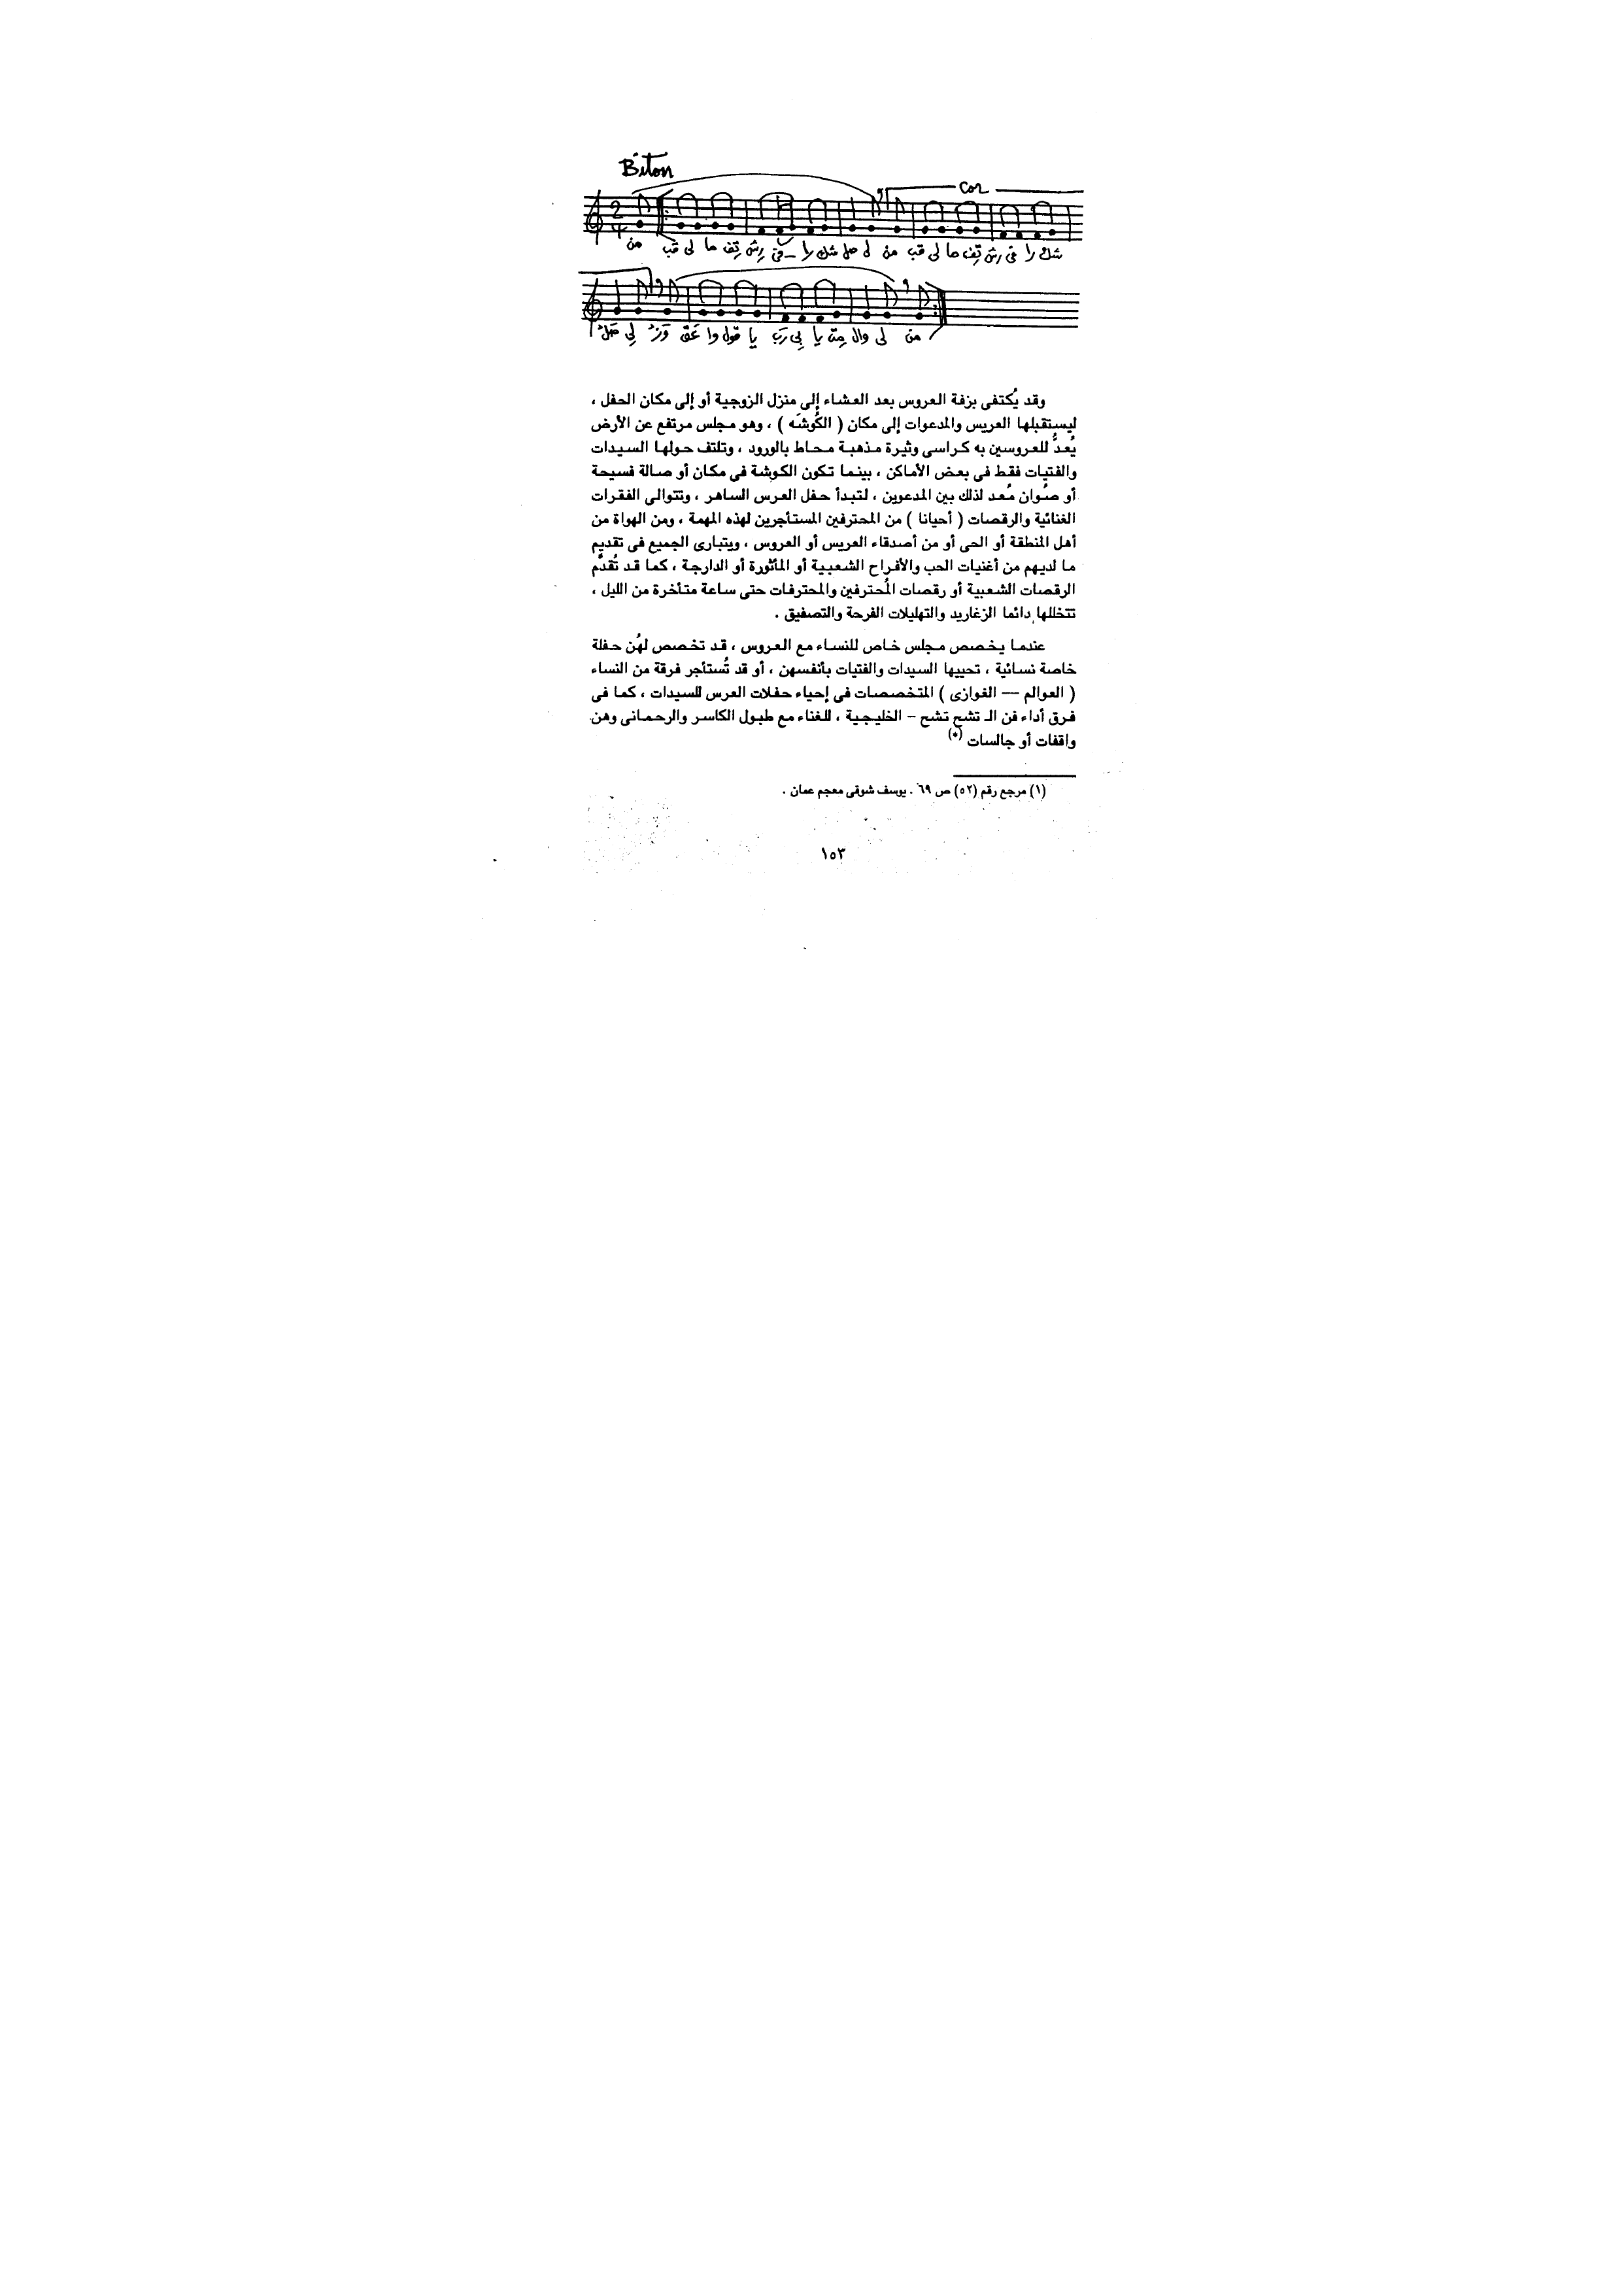 Biton
Cor
من قب لى ما تِف رِش فى را شك صل لى من قب لى ما تِف رش فى را شك
لِى وَز عَق وا قول يا رَب بِى يا وال لى من
وقد يُكتفى بزفة العروس بعد العشاء إلى منزل الزوجية أو إلى مكان الحفل ،
ليستقبلها العريس والمدعوات إلى مكان ( الكُوشَه ) ، وهو مجلس مرتفع عن الأرض
يُعدُّ للعروسين به كراسى وثيرة مذهبة محاط بالورود ، وتلتف حولها السيدات
والفتيات فقط فى بعض الأماكن ، بينما تكون الكوشة فى مكان أو صالة فسيحة
أو صُوان مُعد لذلك بين المدعوين ، لتبدأ حفل العرس الساهر ، وتتوالى الفقرات
الغنائية والرقصات ( أحيانا ) من المحترفين المستأجرين لهذه المهمة ، ومن الهواة من
أهل المنطقة أو الحى أو من أصدقاء العريس أو العروس ، ويتبارى الجميع فى تقديم
ما لديهم من أغنيات الحب والأفراح الشعبية أو المأثورة أو الدارجة ، كما قد تُقدَّم
الرقصات الشعبية أو رقصات المُحترفين والمحترفات حتى ساعة متأخرة من الليل ،
تتخللها دائما الزغاريد والتهليلات الفرحة والتصفيق .
عندما يخصص مجلس خاص للنساء مع العروس ، قد تخصص لهُن حفلة
خاصة نسائية ، تحييها السيدات والفتيات بأنفسهن ، أو قد تُستأجر فرقة من النساء
( العوالم — الغوازى ) المتخصصات فى إحياء حفلات العرس للسيدات ، كما فى
فرق أداء فن الـ تشح تشح – الخليجية ، للغناء مع طبول الكاسر والرحمانى وهن
واقفات أو جالسات (*)
(١) مرجع رقم (٥٢) ص ٦٩ . يوسف شوقى معجم عمان .
١٥٣